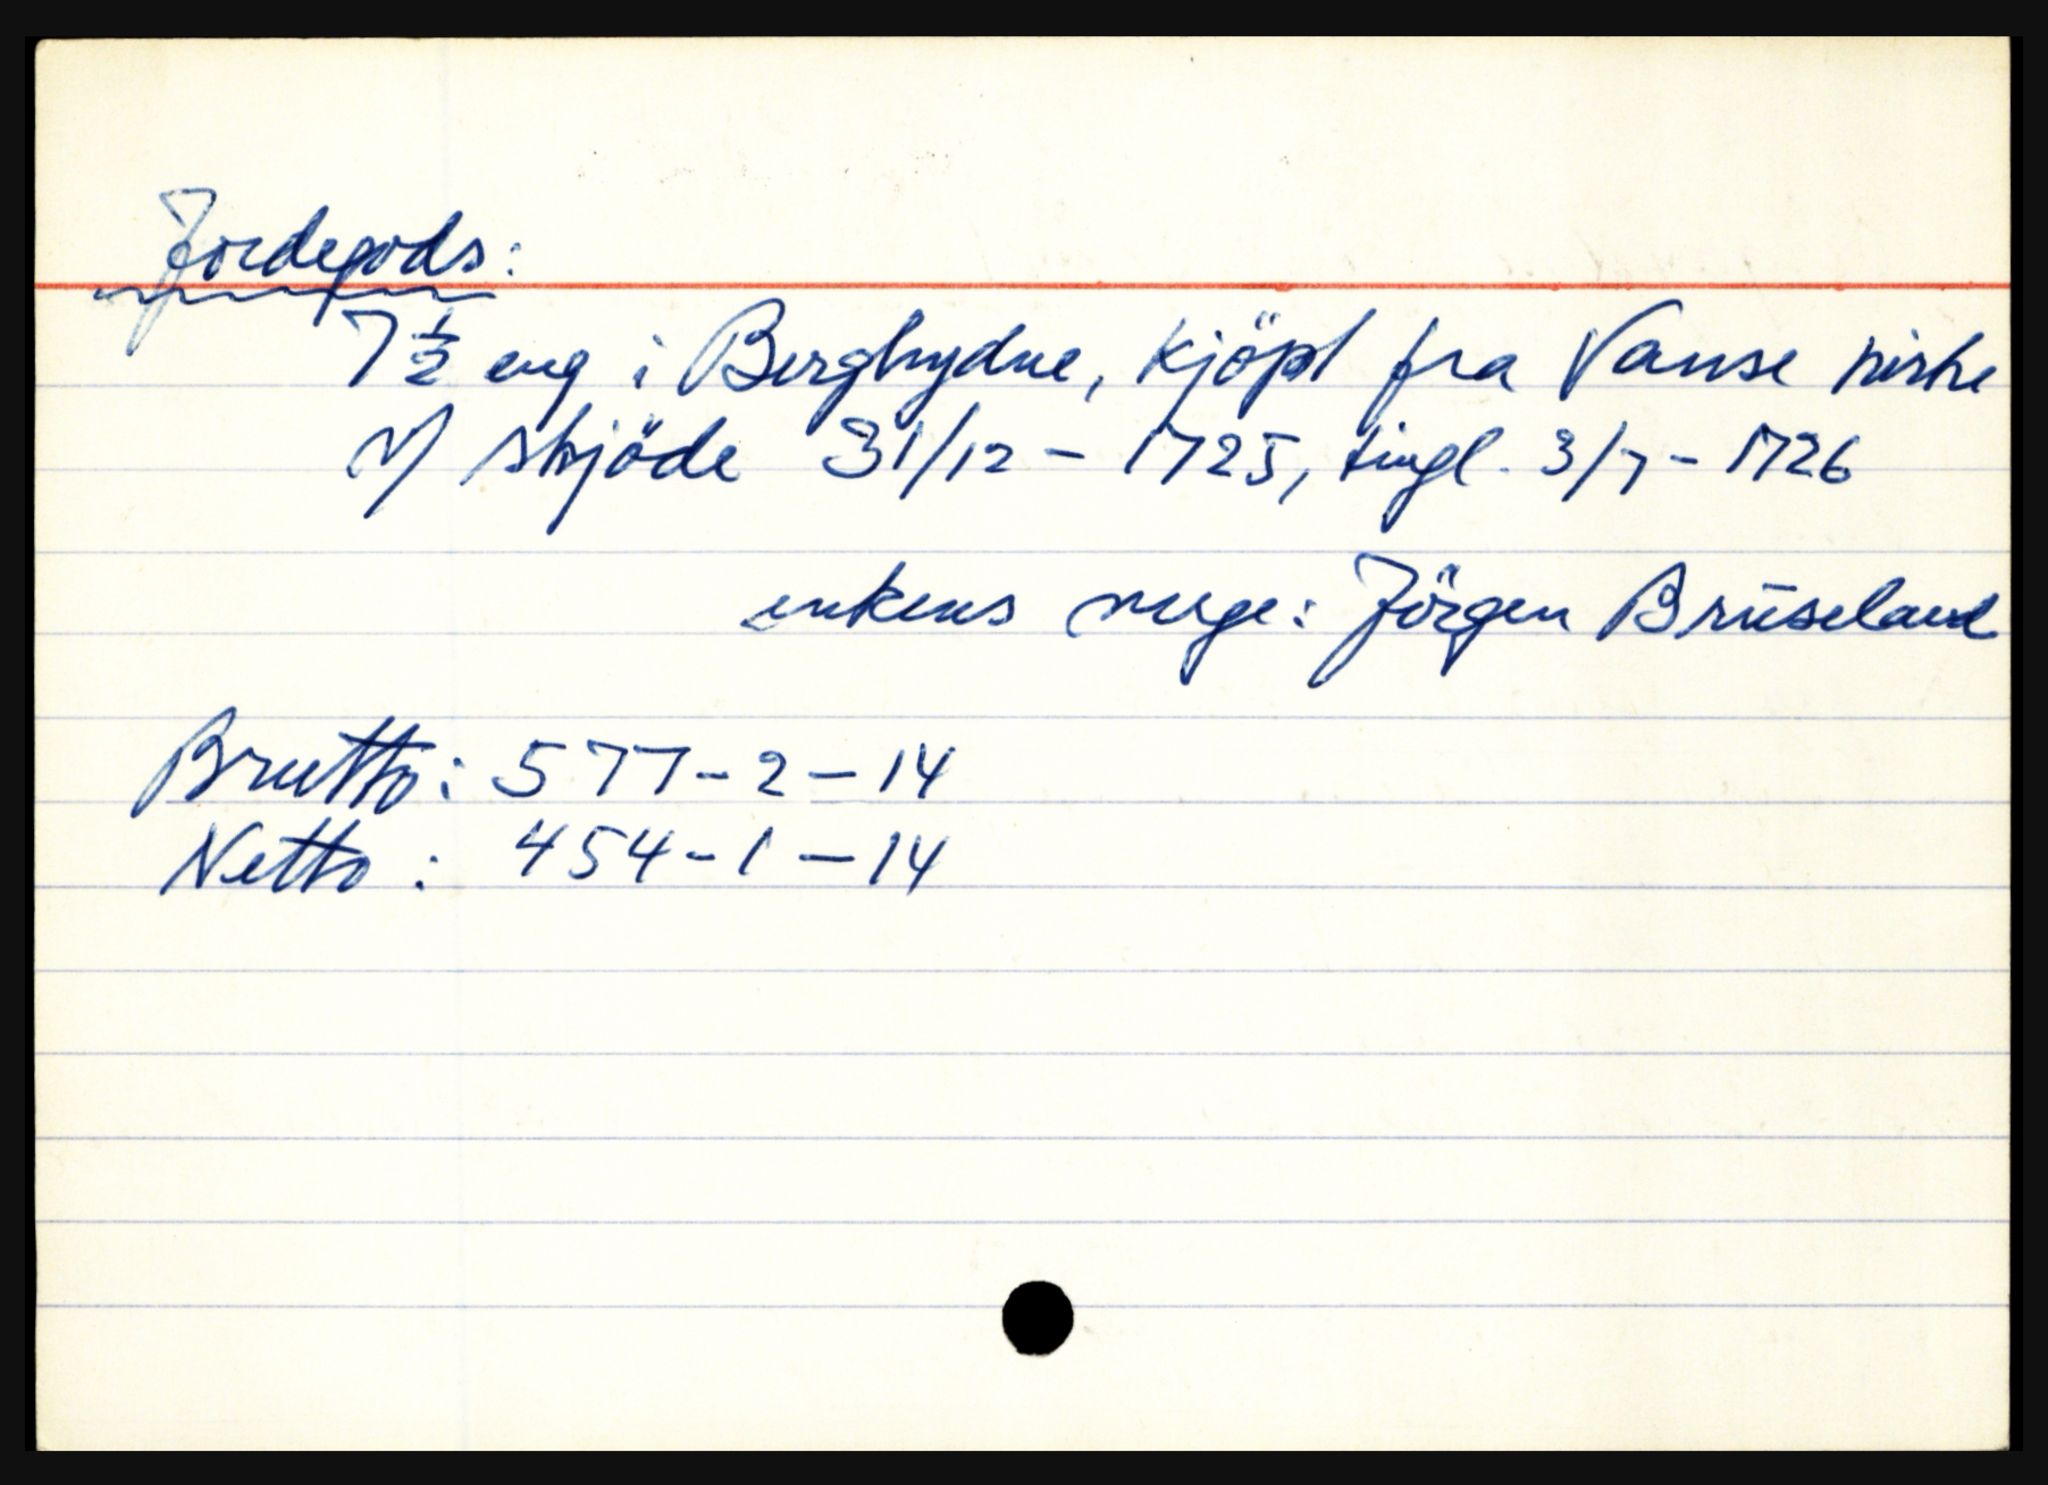 Jordegods:
7 1/2 eng i Berghydne, kjöpt fra Vanse kirke
v/ skjöde 31/12 - 1725, tingl. 3/7 - 1726
enkens verge: Jörgen Brüseland
Brutto: 577 - 2 - 14
Netto: 454 - 1 - 14